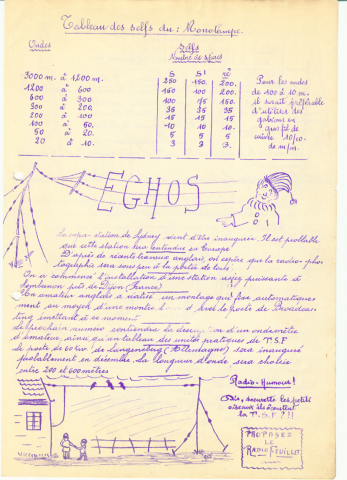 Tableau des selfs du : Monolampe.
Ondes
Selfs
Nombre de spires
S S1 R
3000 m. à 1200 m. 250 150. 200.
1200 à 600 150 100 200.
600 à 300 100 75 150.
300 à 200 35 35 35
200 à 100 15 15 15
100 à 50. 10 10 10.
50 à 20. 5 5 5
20 à 10. 3 2 3.
Pour les ondes
de 100 à 10 m.
il serait préférable
d'utiliser des
gabions en
gros fil de
cuivre 10/10
de m/m.
ECHOS
La super-station de Sydney vient d'être inaugurée. Il est probable
que cette station sera entendue en Europe
D'après de récents travaux anglais, on espère que la radio-phot
tographie sera sous peu à la portée de tous
On a commencé l'installation d'une station assez puissante à
près de Dijon (France)
Un amateur anglais a réalisé un montage qui fixe automatique
ment au moyen d'une montre avec le poste de Broadcas
ting émettant à ce moment
Le prochain numéro contiendra la description d'un ondemètre
d'amateur, ainsi qu'un tableau des unités pratiques de T.S.F
Le poste de 60 kw. de Langenberg (Allemagne) sera inauguré
probablement en décembre. La longueur d'onde sera choisie
entre 200 et 600 mètres
Radio-Humour!
Dis, les petits
oiseaux ils écoutent
la T.S.F ?!!
PROPAGEZ
LE
RADIO FEUILLET